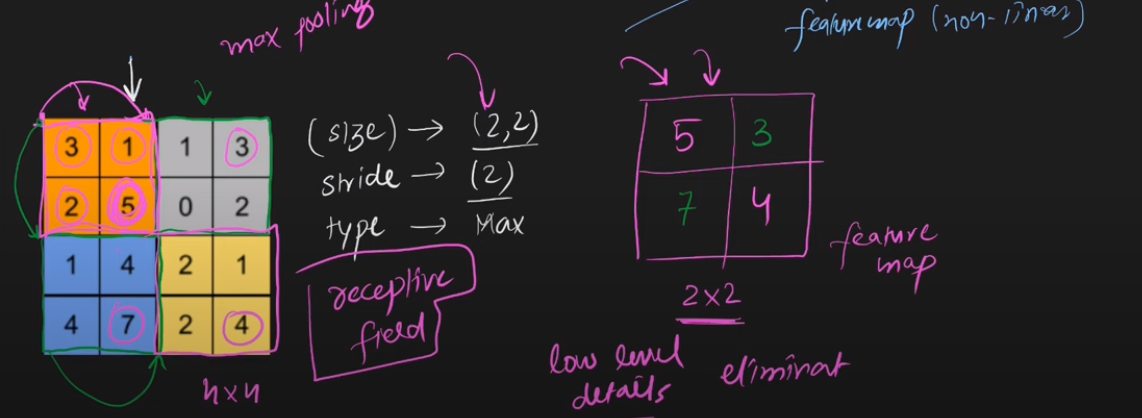 max pooling
featuremap (non-linear)
3 1 1 3
2 5 0 2
1 4 2 1
4 7 2 4
4x4
(size) → (2,2)
stride → (2)
type → Max
receptive
field
5 3
7 4
2x2
feature
map
low level
details
eliminat